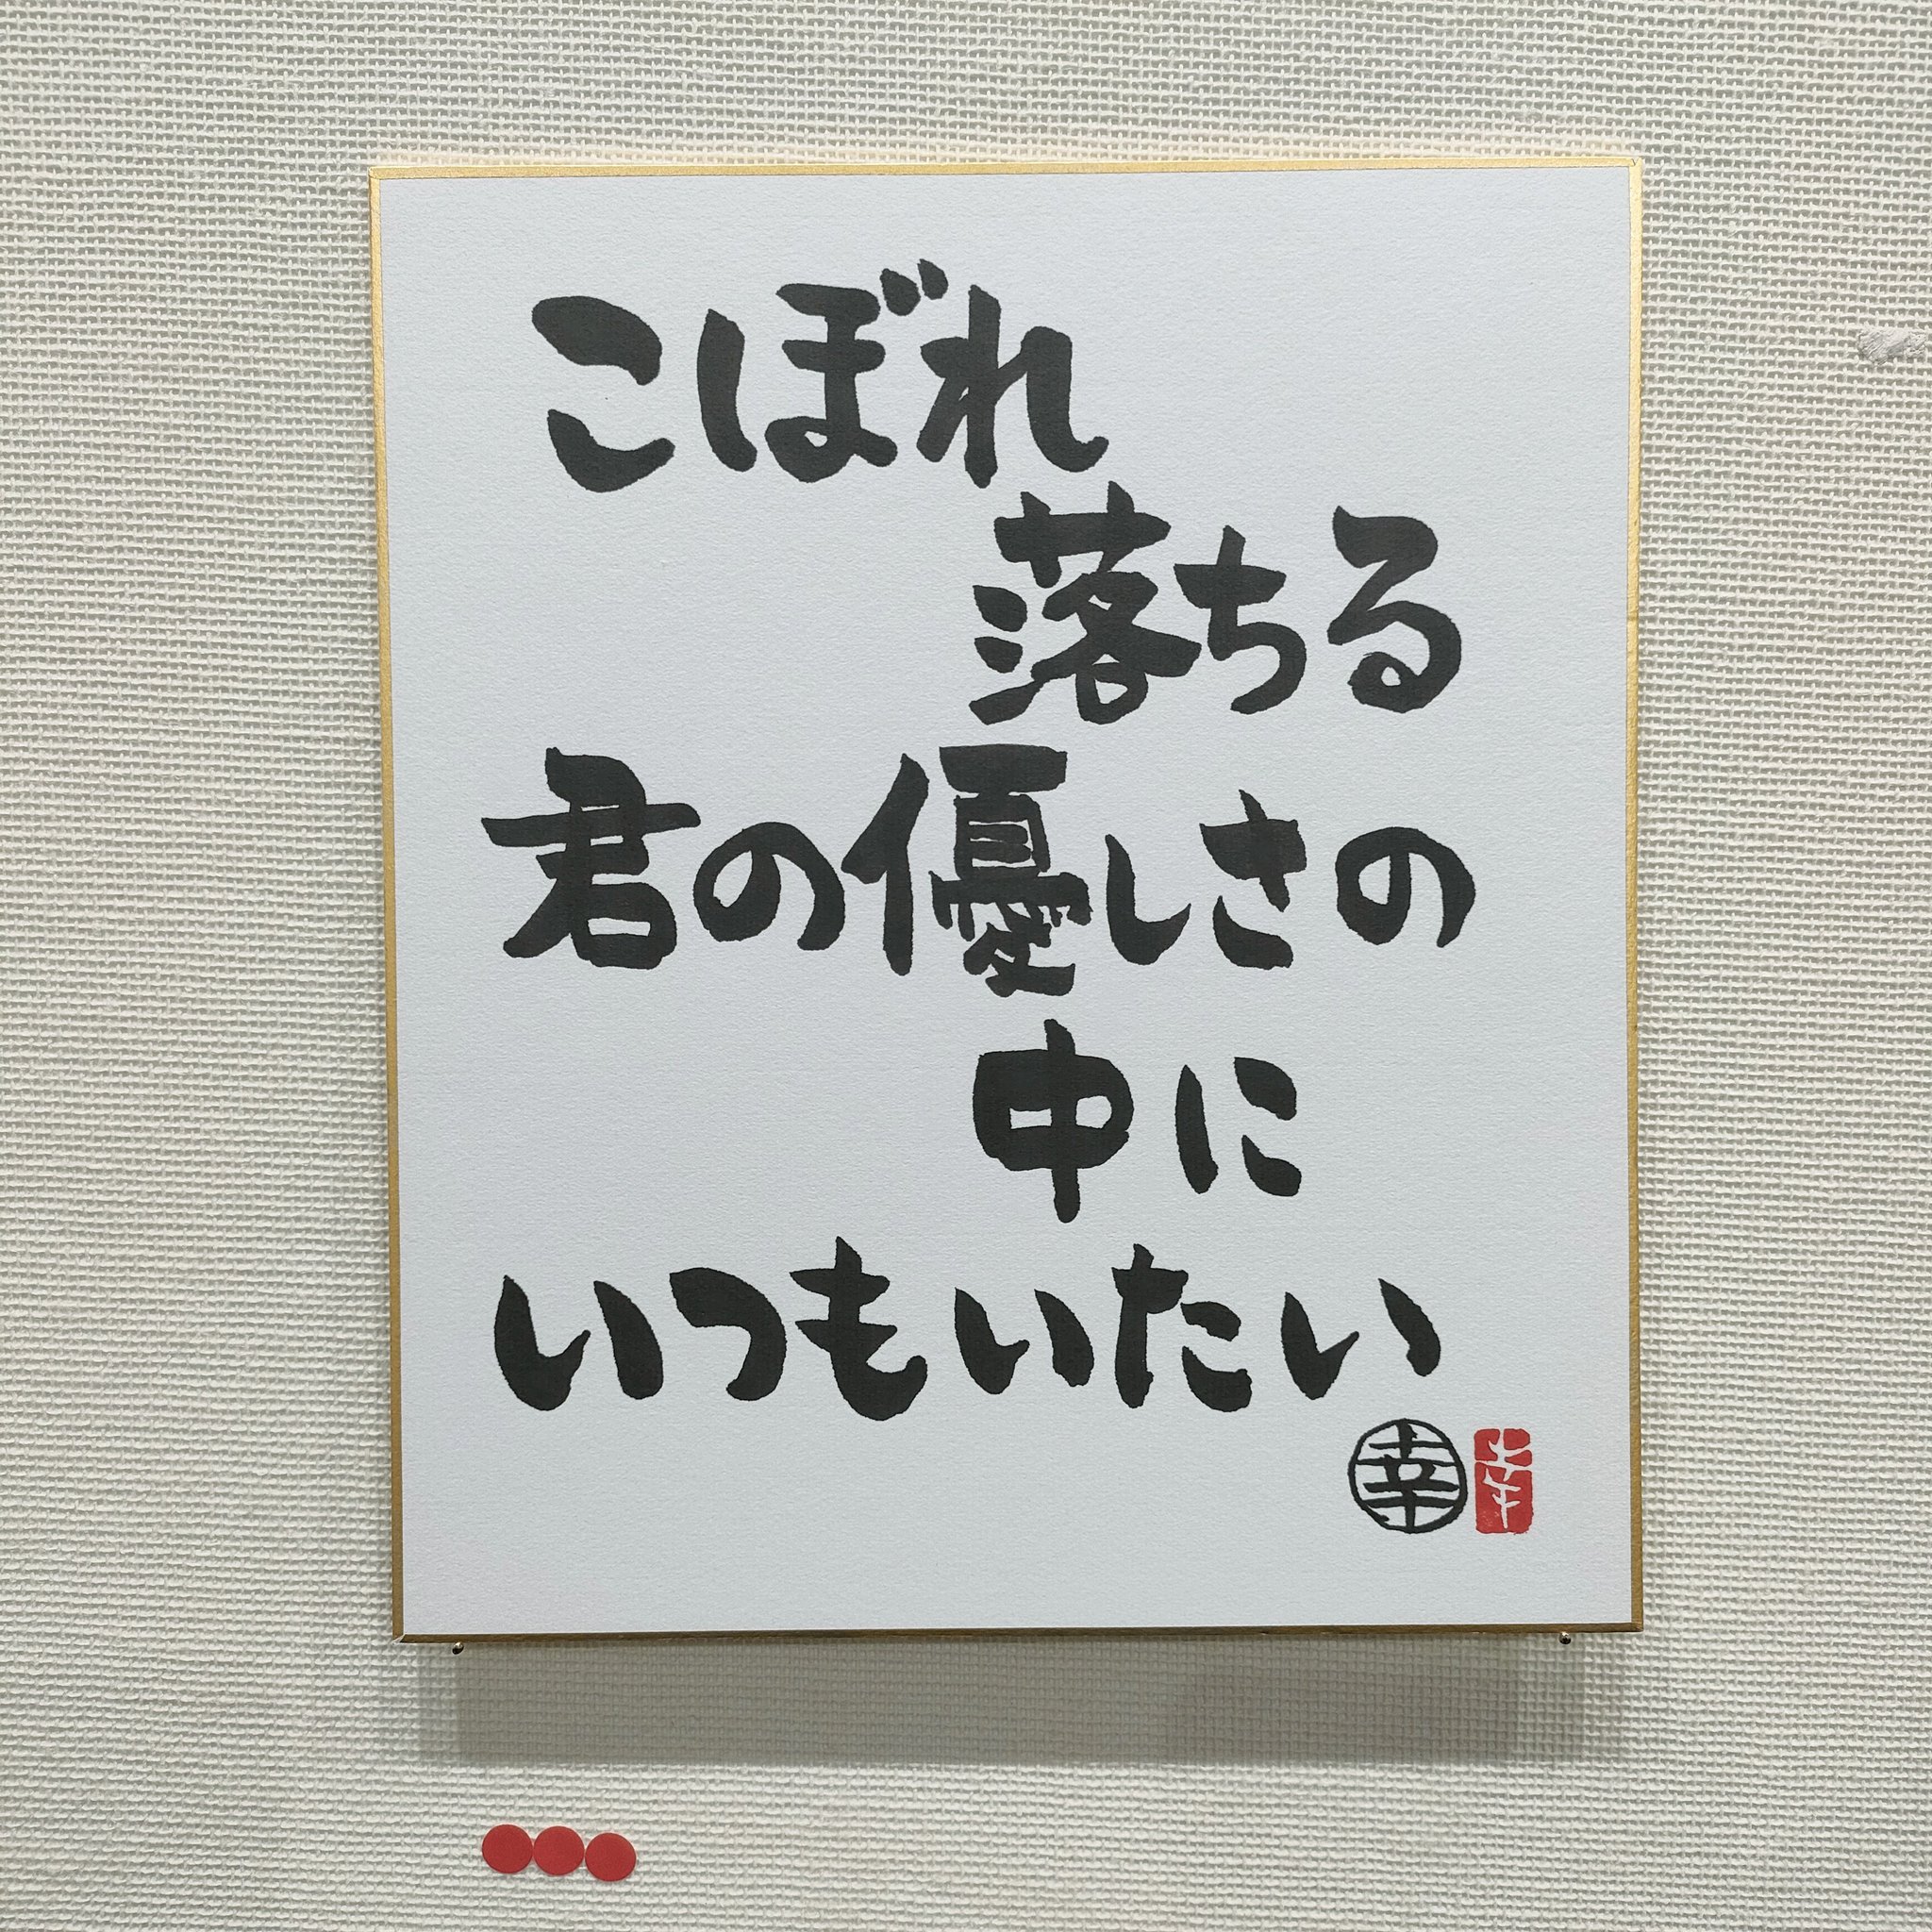 こぼれ
落ちる
君の優しさの
中に
いつもいたい
幸
幸